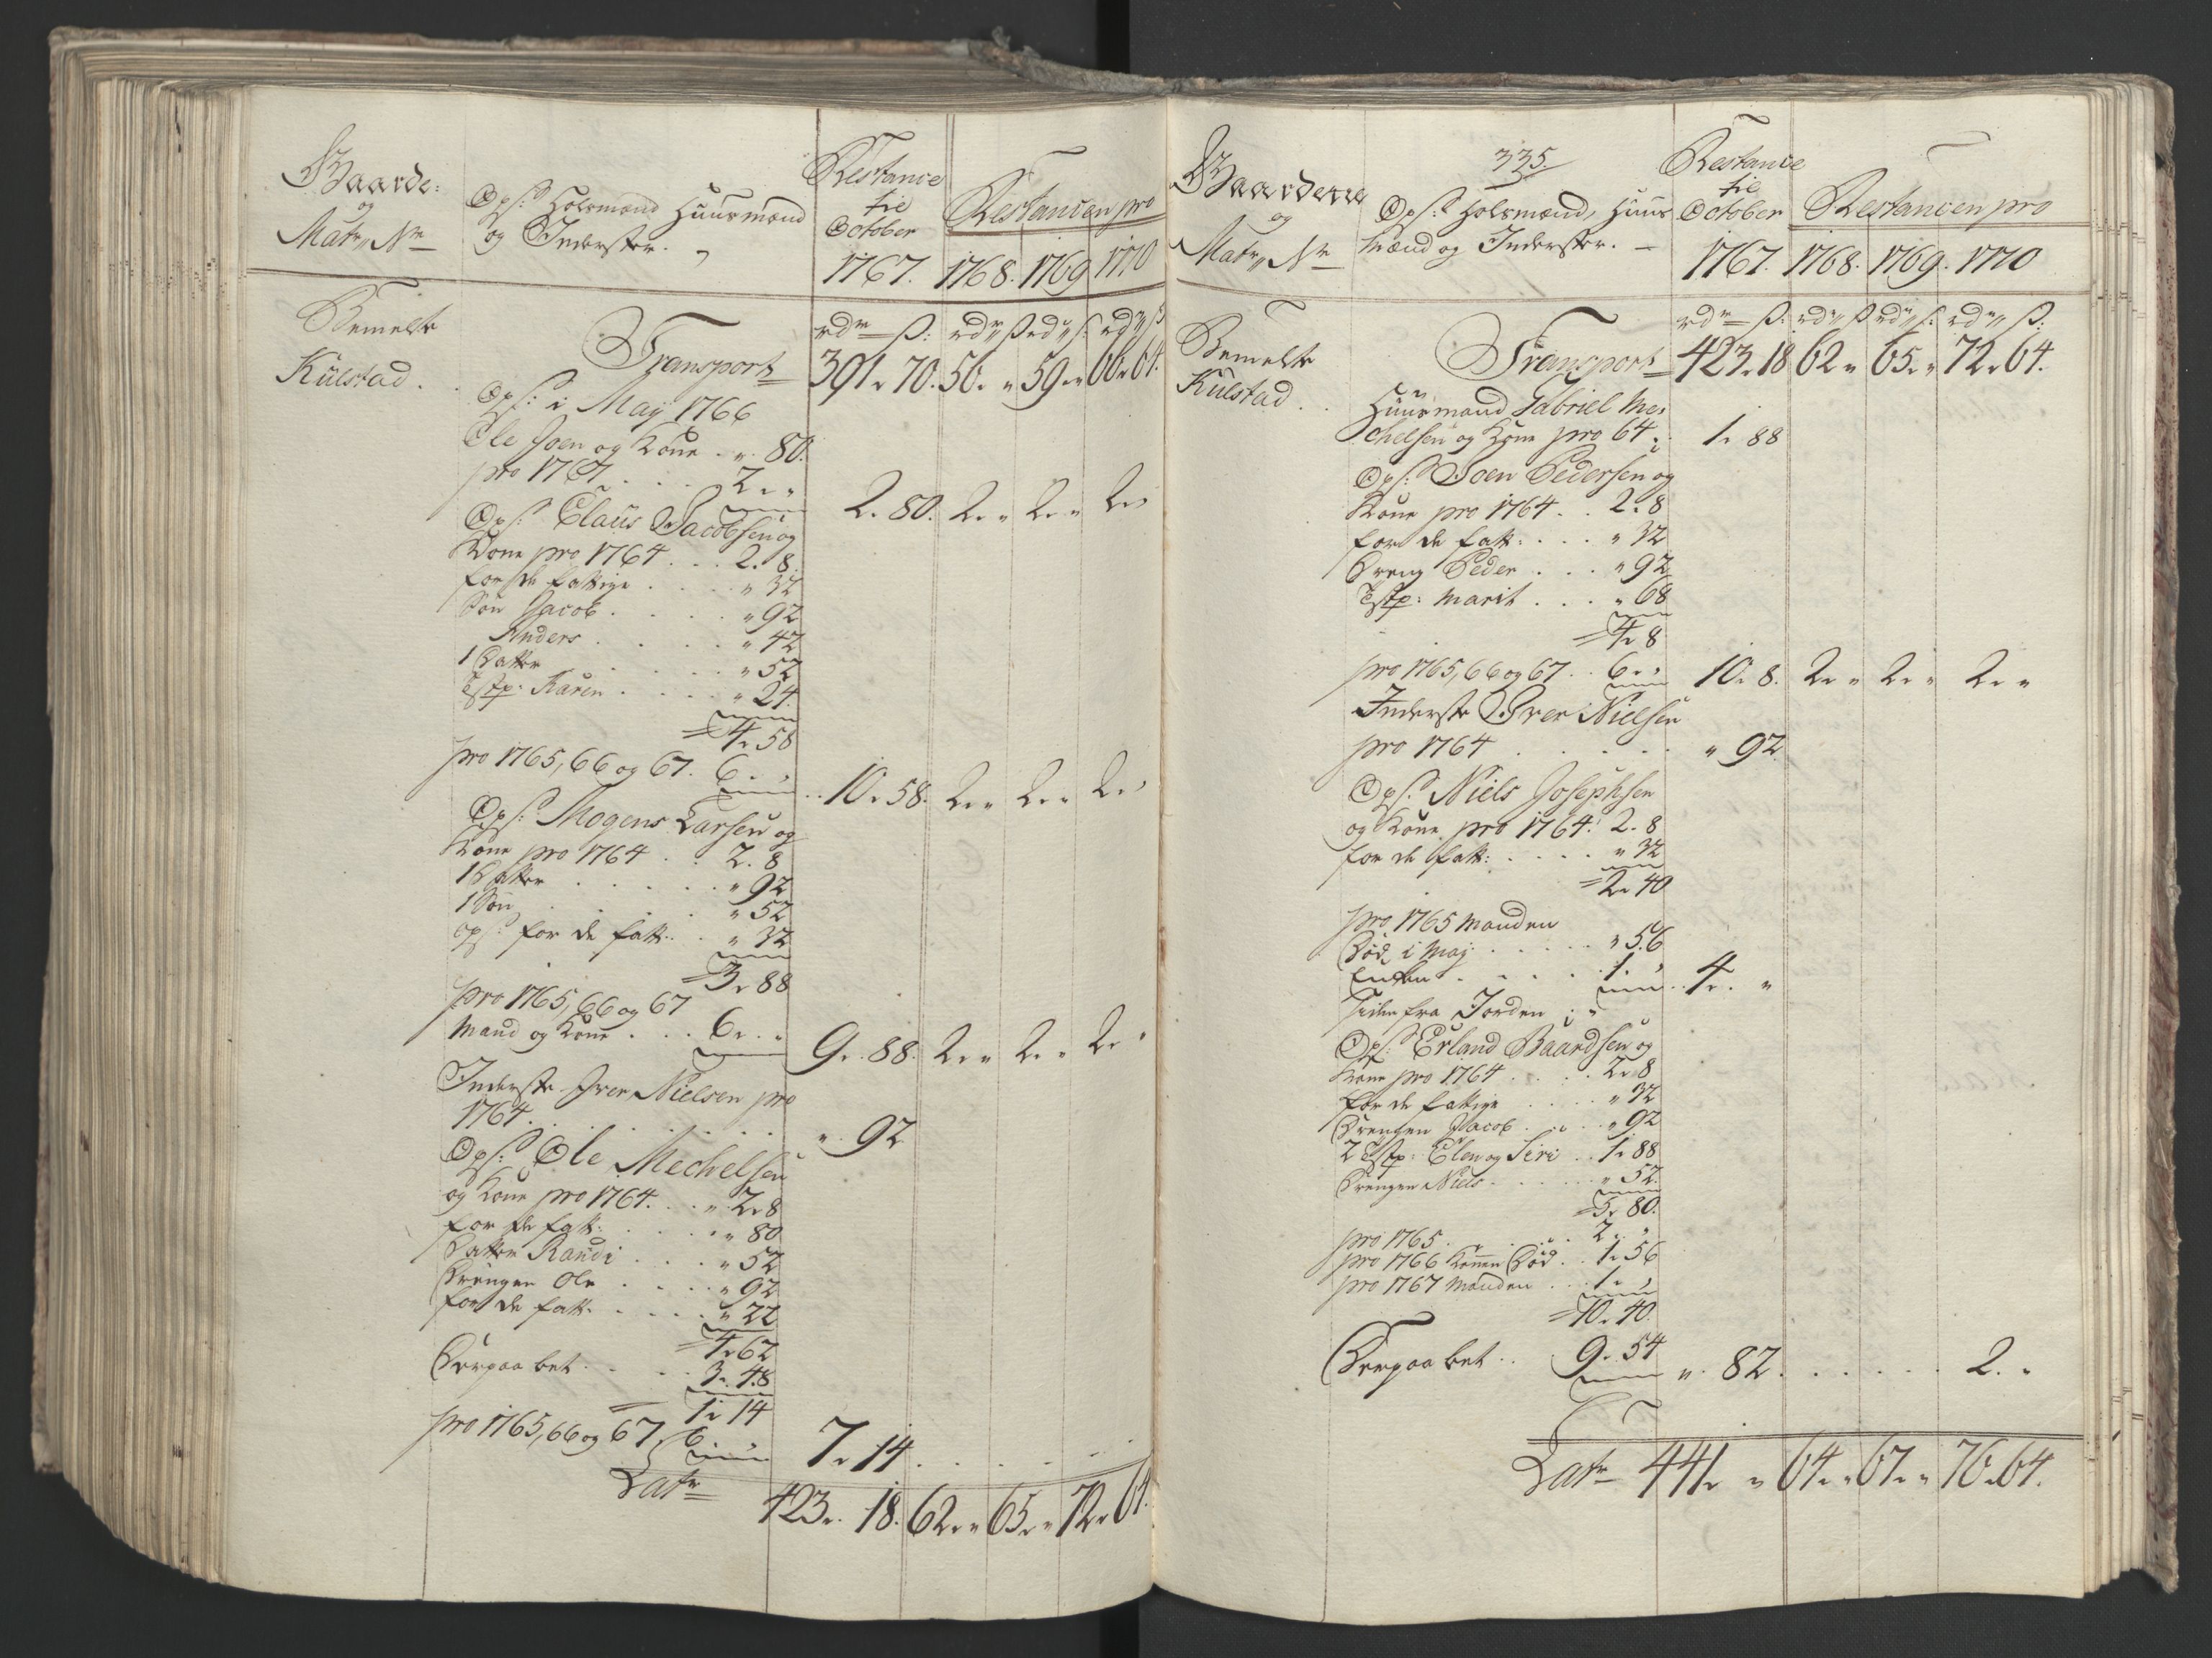 Gaarde:
og
Matr„ Nr
Ops: Holsmænd Huusmænd
og Inderster.
Restance
til
October
1767.
Restancen pro
1768. 1769 1770
rdr ß: rdr„ ß rd„ ß: rd„ ß
Bemelte
Kulstad.
Transport 391„ 70. 56. „ 59„ „ 66„ 64.
Ops: i Maj 1766
Ole Joen og Kone . „ 80.
pro 1767 . . . . 2 „ „ 2. 80. 2„ „ 2„ „ 2„
Ops: Claus Jacobsen og
Kone pro 1764 . . . 2. 8.
for de fattige . . . „ 32
Søn Jacob . . . . „ 92
Anders . . . . „ 42
1 Datter . . . . „ 52
Tstp: Karen . . . . „ 24.
= 4„ 58
pro 1765, 66 og 67. 6. „ . . 10„ 58. 2„ „ 2„ „ 2„
Ops: Mogens Larsen og
Kone pro 1764 . . 2. 8
1 Datter . . . . „ 92
1 Søn . . . . „ 52
ops: for de fatt: . . „ 32
= 3„ 88
pro 1765, 66 og 67
Mand og Kone . . . 6„ . „ 9„ . 88. 2„ „ 2„ „ 2„ „
Inderste Iver Nielsen pro
1764 . . . . . . „ 92
Ops: Ole Mechelsen
og Kone pro 1764. . . „ 2„ 8
for de fatt: . . . . „ 80
Datter Randi . . . „ 52
Drengen Ole . . . . „ 92
for de fatt: . . . . „ 22
= 4„ 62
Derpaa bet . . . . 3„ 48
= 1„ 14
pro 1765, 66 og 67 6. „ 7„ 14 . . . . .
Latr 423„ 18. 62„ „ 65„ „ 72„ 64.
335.
Gaardene
og
Matr„ Nr
Ops: Holsmænd, Huus
mænd og Inderster. –
Restance
til
October
1767.
Restancen pro
1768. 1769. 1770
rdr ß: rd„ ß rd„ ß: rd„ ß:
Bemelte
Kulstad . .
Transport 423„ 18 62 „ 65„ „ 72„ 64.
Huusmand Gabriel Me,
chelsen og Kone pro 64. . 1„ 88
Ops: Joen Pedersen og
Kone pro 1764 . . 2„ 8
for de fatt: . . . „ 32
Dreng Peder . . . „ 92
Tstp: Marit . . . „ 68
= 4„ 8
pro 1765, 66 og 67 . . 6„ „ 10„ 8. 2„ „ 2„ „ 2„ „
Inderste Iver Nielsen
pro 1764 . . . . . „ 92
Ops: Niels Josephsen
og Kone pro 1764: 2. 8
for de fatt: . . . . „ 32
= 2„ 40
pro 1765 Manden
Død i Maj . . . . . „ 56
Enken . . . . 1. „ . . 4„ . „
siden fra Jorden . „
Ops: Erland Baardsen og
Kone pro 1764 . . . . 2„ 8
for de fattige . . . . „ 32
Drengen Jacob . . . „ 92
2 Tstp: Elen og Siri . . 1„ 88
Drengen Niels . . . . . „ 52.
= 5„ 80.
pro 1765 . . . . . 2„ „
pro 1766 Konen Død . . 1„ 56
pro 1767 Manden . . . 1„ „
= 10„ 40.
Derpaa bet . . 9. 54 „ . 82. . . . . . 2. „
Latr 441„ „ 64„ „ 67„ „ 76„ 64.